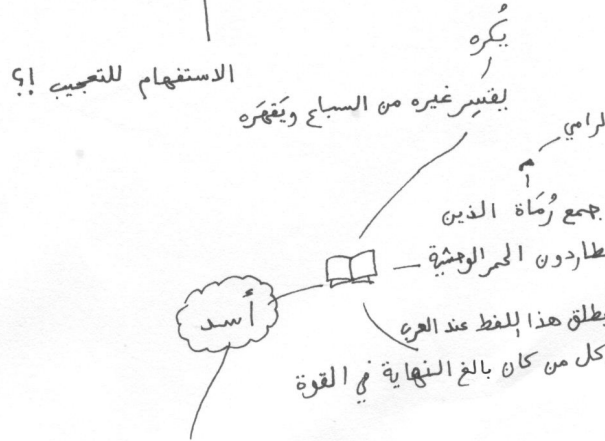 يُكره
الاستفهام للتعجيب !؟
يقسِر غيره من السباع ويَقهَره
الرامي
م
جمع رُمَاة الذين
يطاردون الحمر الوحشية
أسد
يطلق هذا اللفظ عند العرب
كل من كان بالغ النهاية في القوة